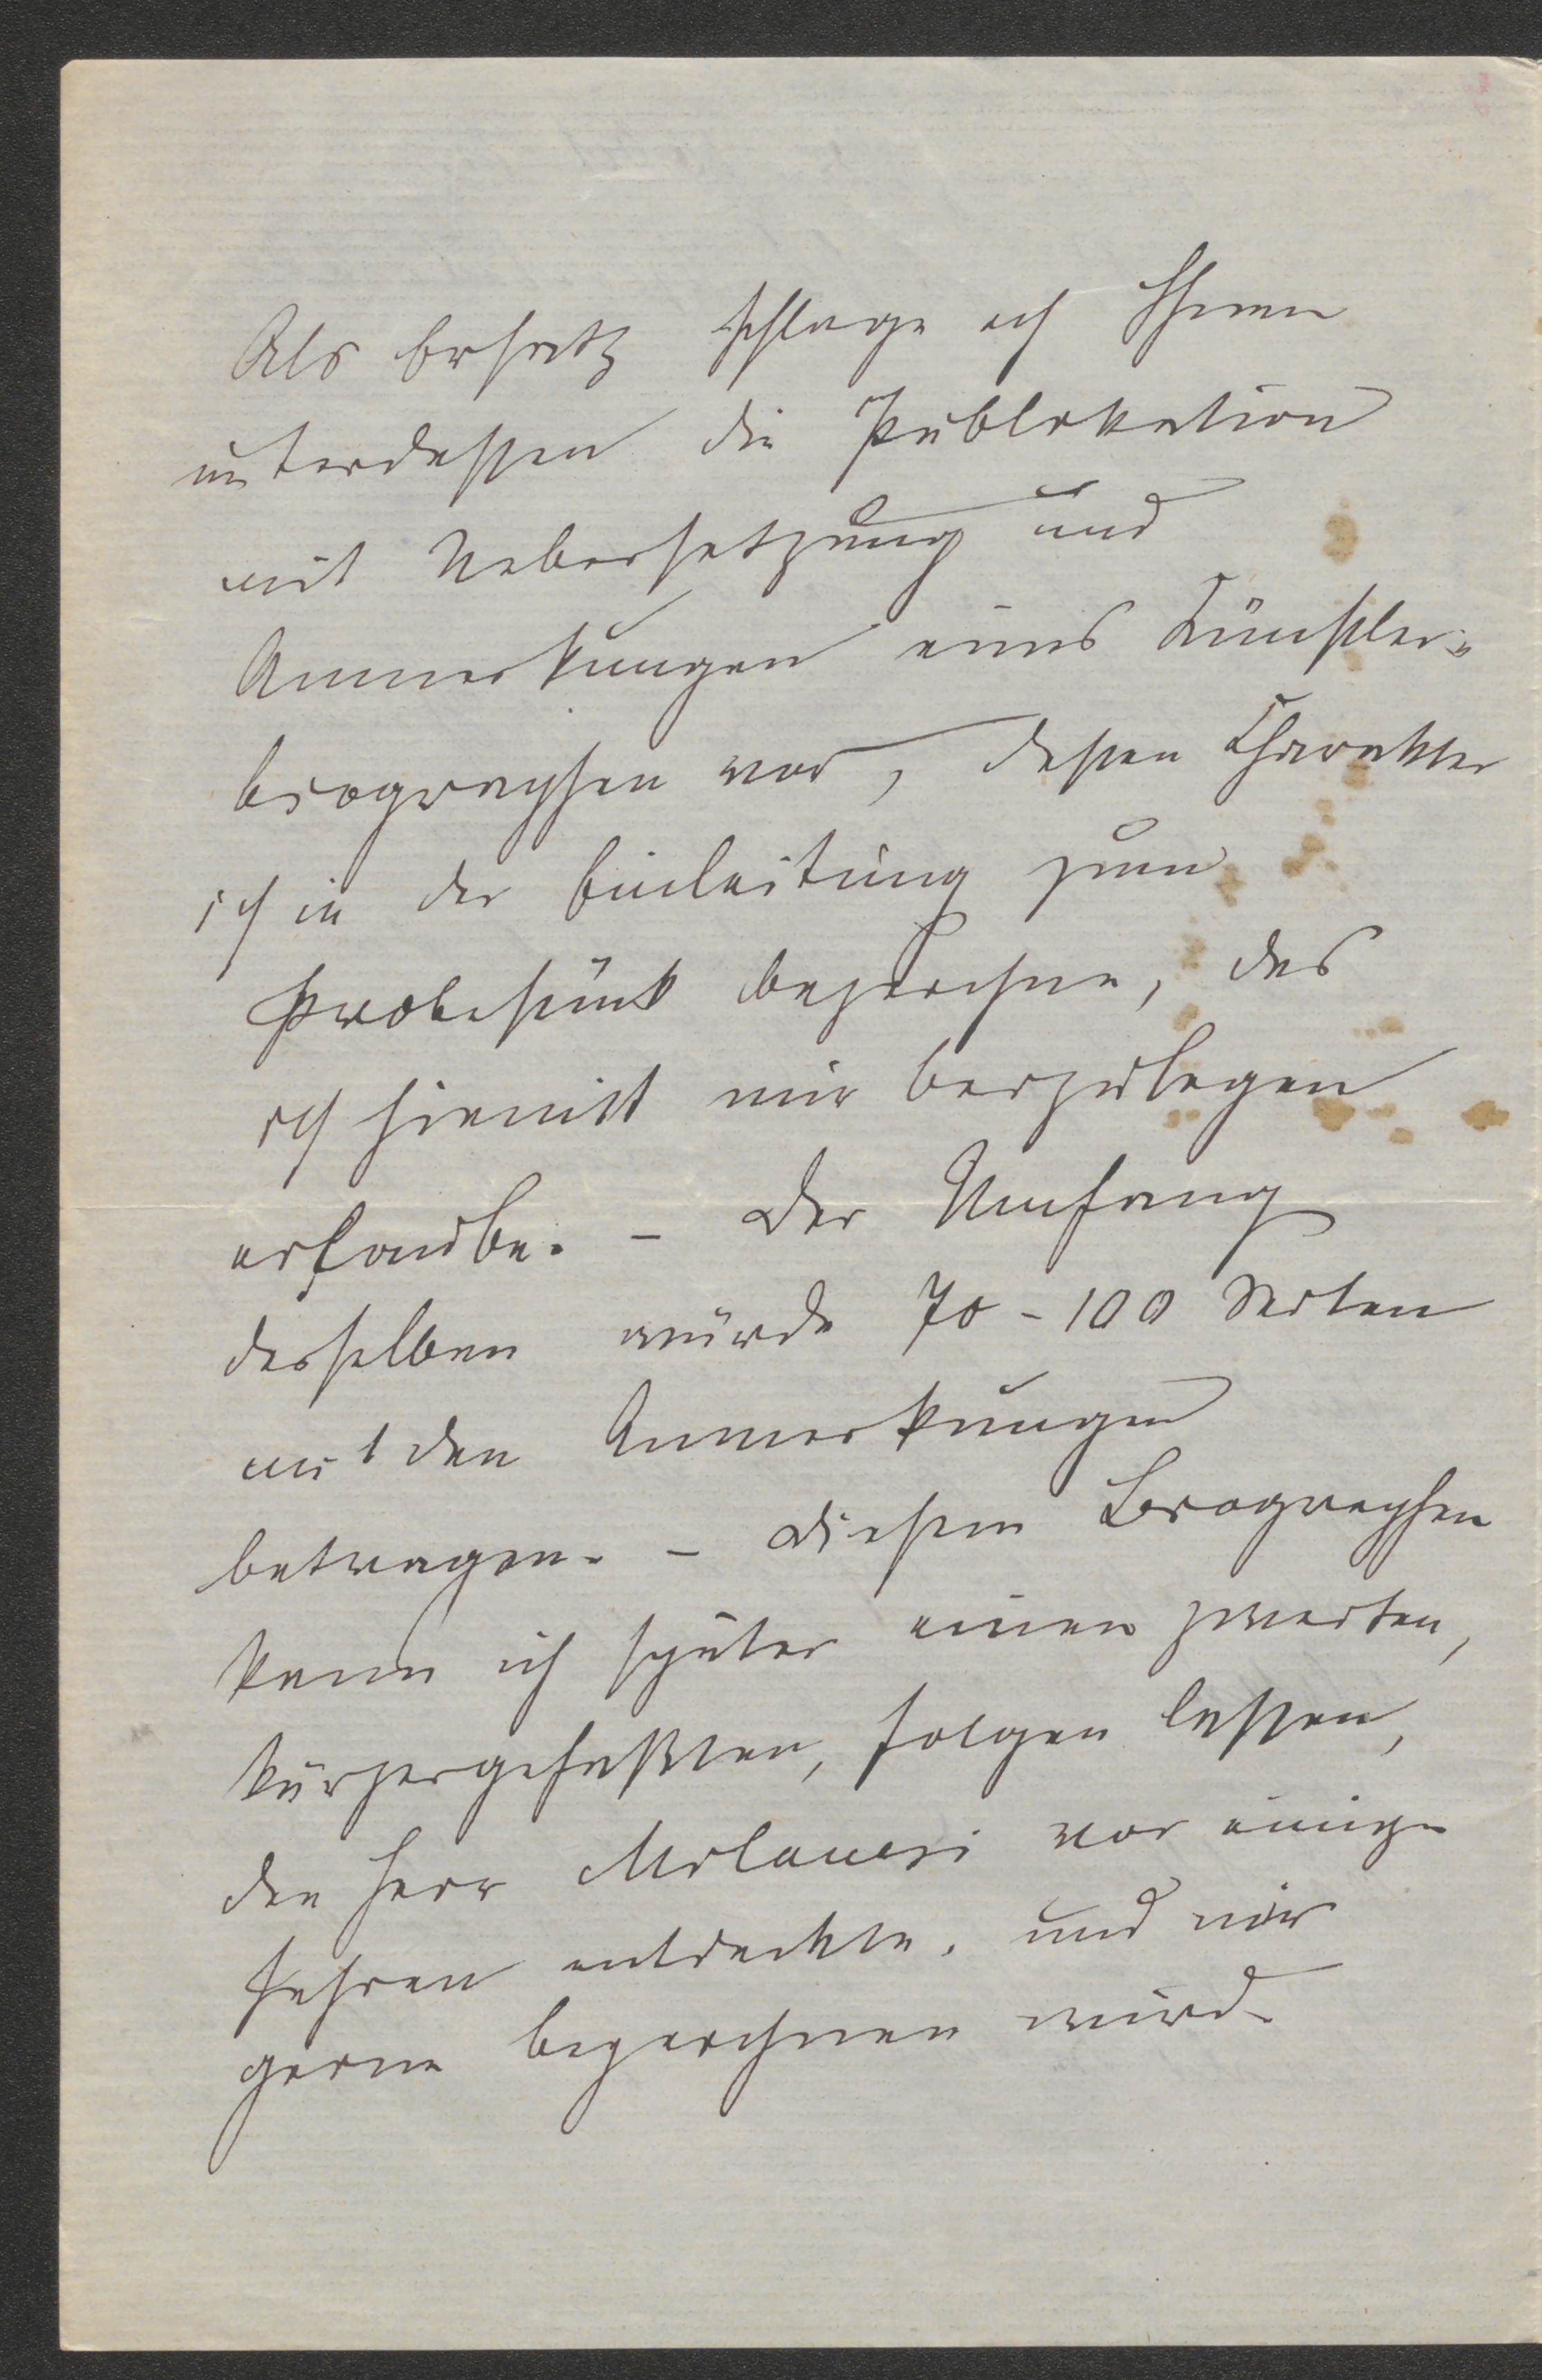 Als Ersatz schlage ich Ihnen
unterdessen die Publikation
mit Uebersetzung und
Anmerkungen eines Künstler-
biographen vor, dessen Charakter
ich in der Einleitung zum
Probestück bezeichne, das
ich hiemit mir beizulegen
erlaube. – Der Umfang
desselben würde 70 - 100 Seiten
mit den Anmerkungen
betragen. – Diesem Biographen
kann ich später einen zweiten,
kürzergefaßten, folgen lassen,
den Herr Milanesi vor einigen
Jahren entdeckte, und mir
gerne bezeichnen wird.